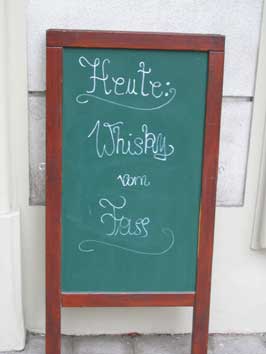 Heute:
Whisky
vom
Fass